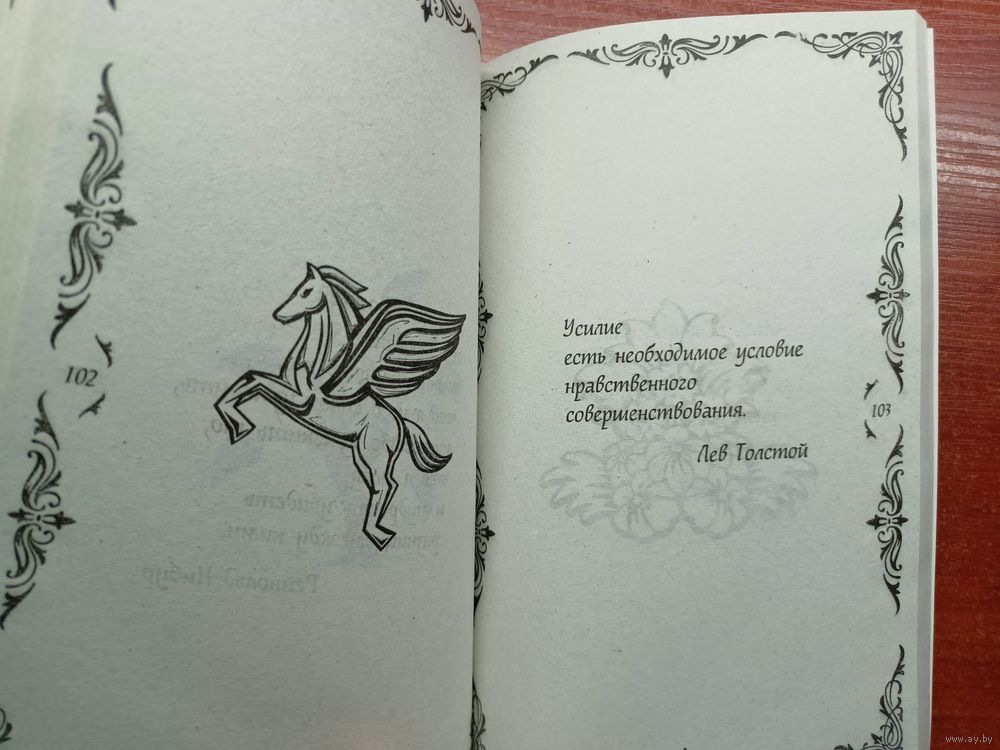 102
Усилие
есть необходимое условие
нравственного
совершенствования.
Лев Толстой
103
www.ay.by